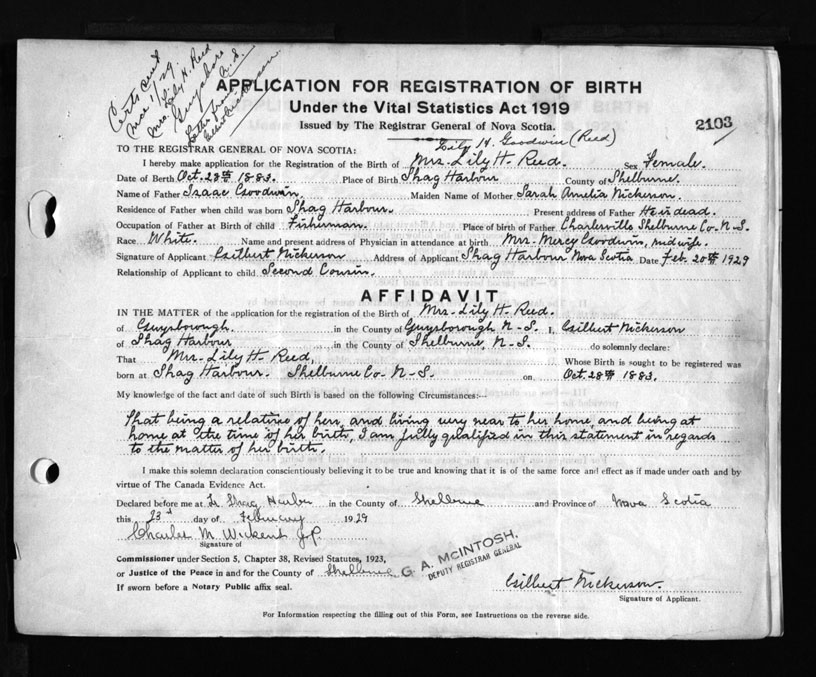 Certs sent
Mar 1/29
Mrs. Lily H. Reed
Guysboro
N.S.
APPLICATION FOR REGISTRATION OF BIRTH
Under the Vital Statistics Act 1919
Issued by The Registrar General of Nova Scotia.
2103
Lily H. Goodwin (Reed)
TO THE REGISTRAR GENERAL OF NOVA SCOTIA:
I hereby make application for the Registration of the Birth of Mrs. Lily H. Reed. Sex Female.
Date of Birth Oct. 28th 1883. Place of Birth Shag Harbour County of Shelburne.
Name of Father Isaac Goodwin. Maiden Name of Mother Sarah Amelia Nickerson.
Residence of Father when child was born Shag Harbour. Present address of Father He is dead.
Occupation of Father at Birth of child Fisherman. Place of birth of Father Charlesville Shelburne Co. N-S.
Race White. Name and present address of Physician in attendance at birth Mrs. Mercy Goodwin, midwife.
Signature of Applicant Gilbert Nickerson Address of Applicant Shag Harbour Nova Scotia Date Feb. 20th 1929
Relationship of Applicant to child Second Cousin.
AFFIDAVIT
IN THE MATTER of the application for the registration of the Birth of Mrs. Lily H. Reed.
of Guysborough. in the County of Guysborough N-S. I, Gilbert Nickerson
of Shag Harbour in the County of Shelburne, N-S. do solemnly declare:
That Mrs. Lily H. Reed, Whose Birth is sought to be registered was
born at Shag Harbour. Shelburne Co. N-S. on Oct. 28th 1883.
My knowledge of the fact and date of such Birth is based on the following Circumstances:—
That being a relative of hers, and living very near to her home, and being at
home at the time of her birth, I am fully qualified in this statement in regards
to the matter of her birth.
I make this solemn declaration conscientiously believing it to be true and knowing that it is of the same force and effect as if made under oath and by
virtue of The Canada Evidence Act.
Declared before me at Shag Harbor in the County of Shelburne and Province of Nova Scotia
this 23d day of February 1929
Charles M. Wickens J.P.
Signature of
Commissioner under Section 5, Chapter 38, Revised Statutes, 1923,
or Justice of the Peace in and for the County of Shelburne
G. A. McINTOSH,
DEPUTY REGISTRAR GENERAL
If sworn before a Notary Public affix seal.
Gilbert Nickerson.
Signature of Applicant.
For Information respecting the filling out of this Form, see Instructions on the reverse side.